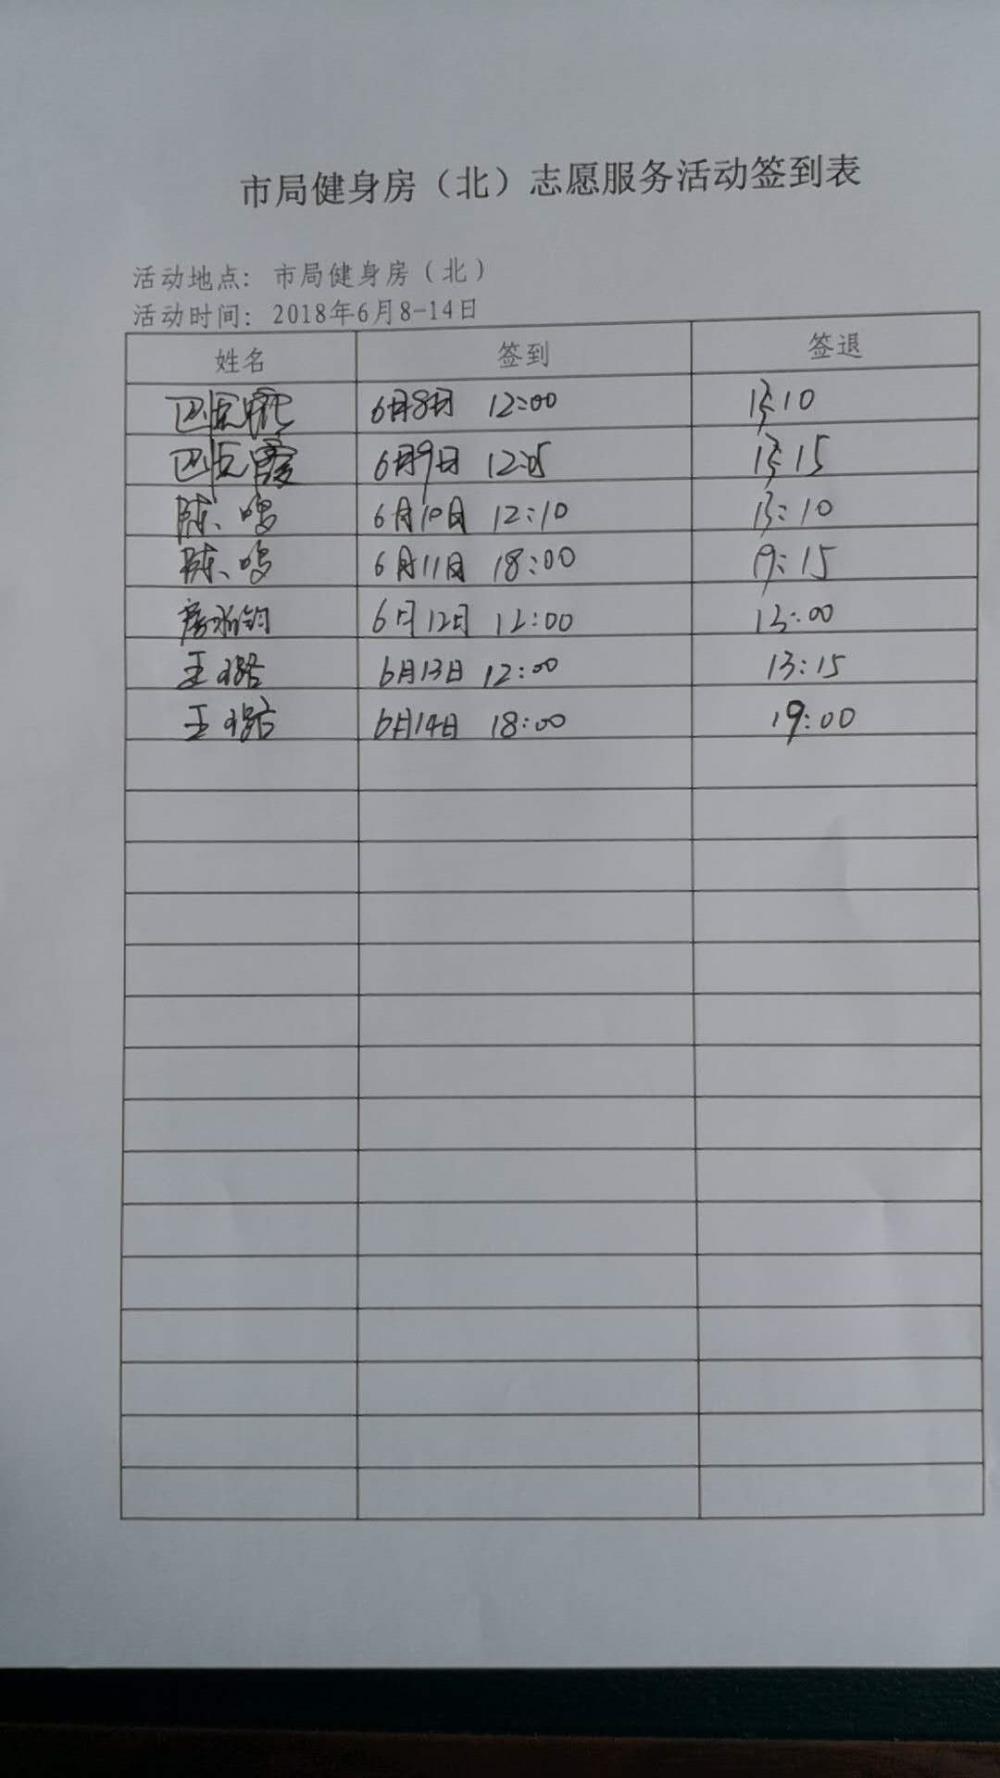 市局健身房（北）志愿服务活动签到表
活动地点: 市局健身房（北）
活动时间: 2018年6月8-14日
姓名 签到 签退
6月8日 12:00 13:10
6月9日 12:05 13:15
陈鸣 6月10日 12:10 13:10
陈鸣 6月11日 18:00 19:15
6月12日 12:00 13:00
王璐 6月13日 12:00 13:15
王璐 6月14日 18:00 19:00